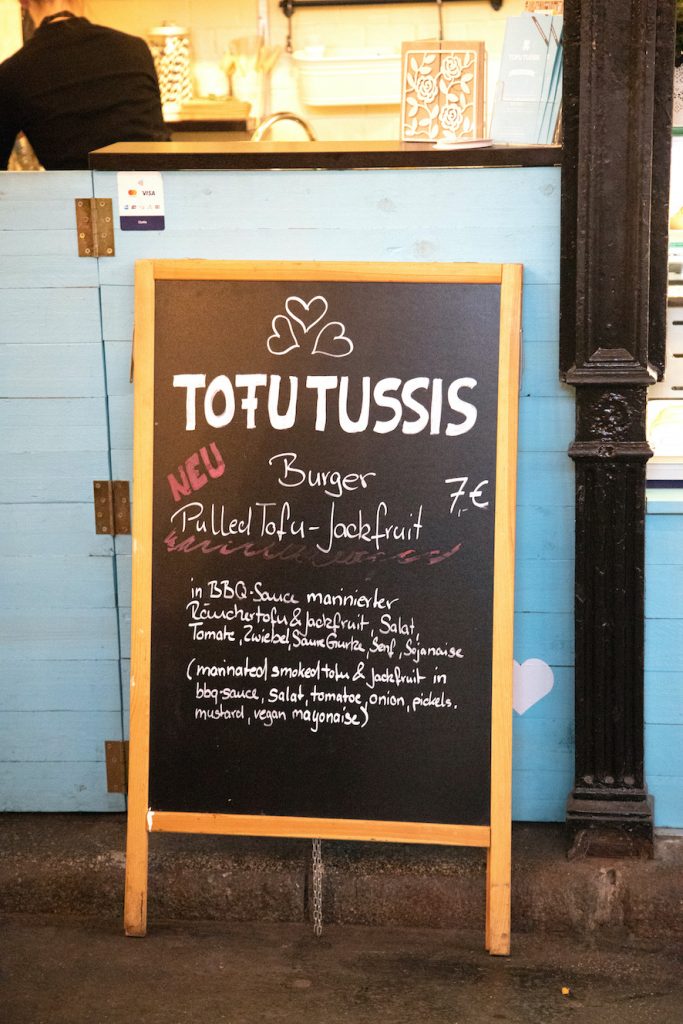 TOFU TUSSIS
VISA
TOFU TUSSIS
NEU
Burger
7,-€
Pulled Tofu-Jackfruit
in BBQ-Sauce marinierter
Räuchertofu & Jackfruit, Salat,
Tomate, Zwiebel, Saure Gurke, Senf, Sojanaise
(marinated smoked tofu & jackfruit in
bbq-sauce, salat, tomatoe, onion, pickels,
mustard, vegan mayonaise)